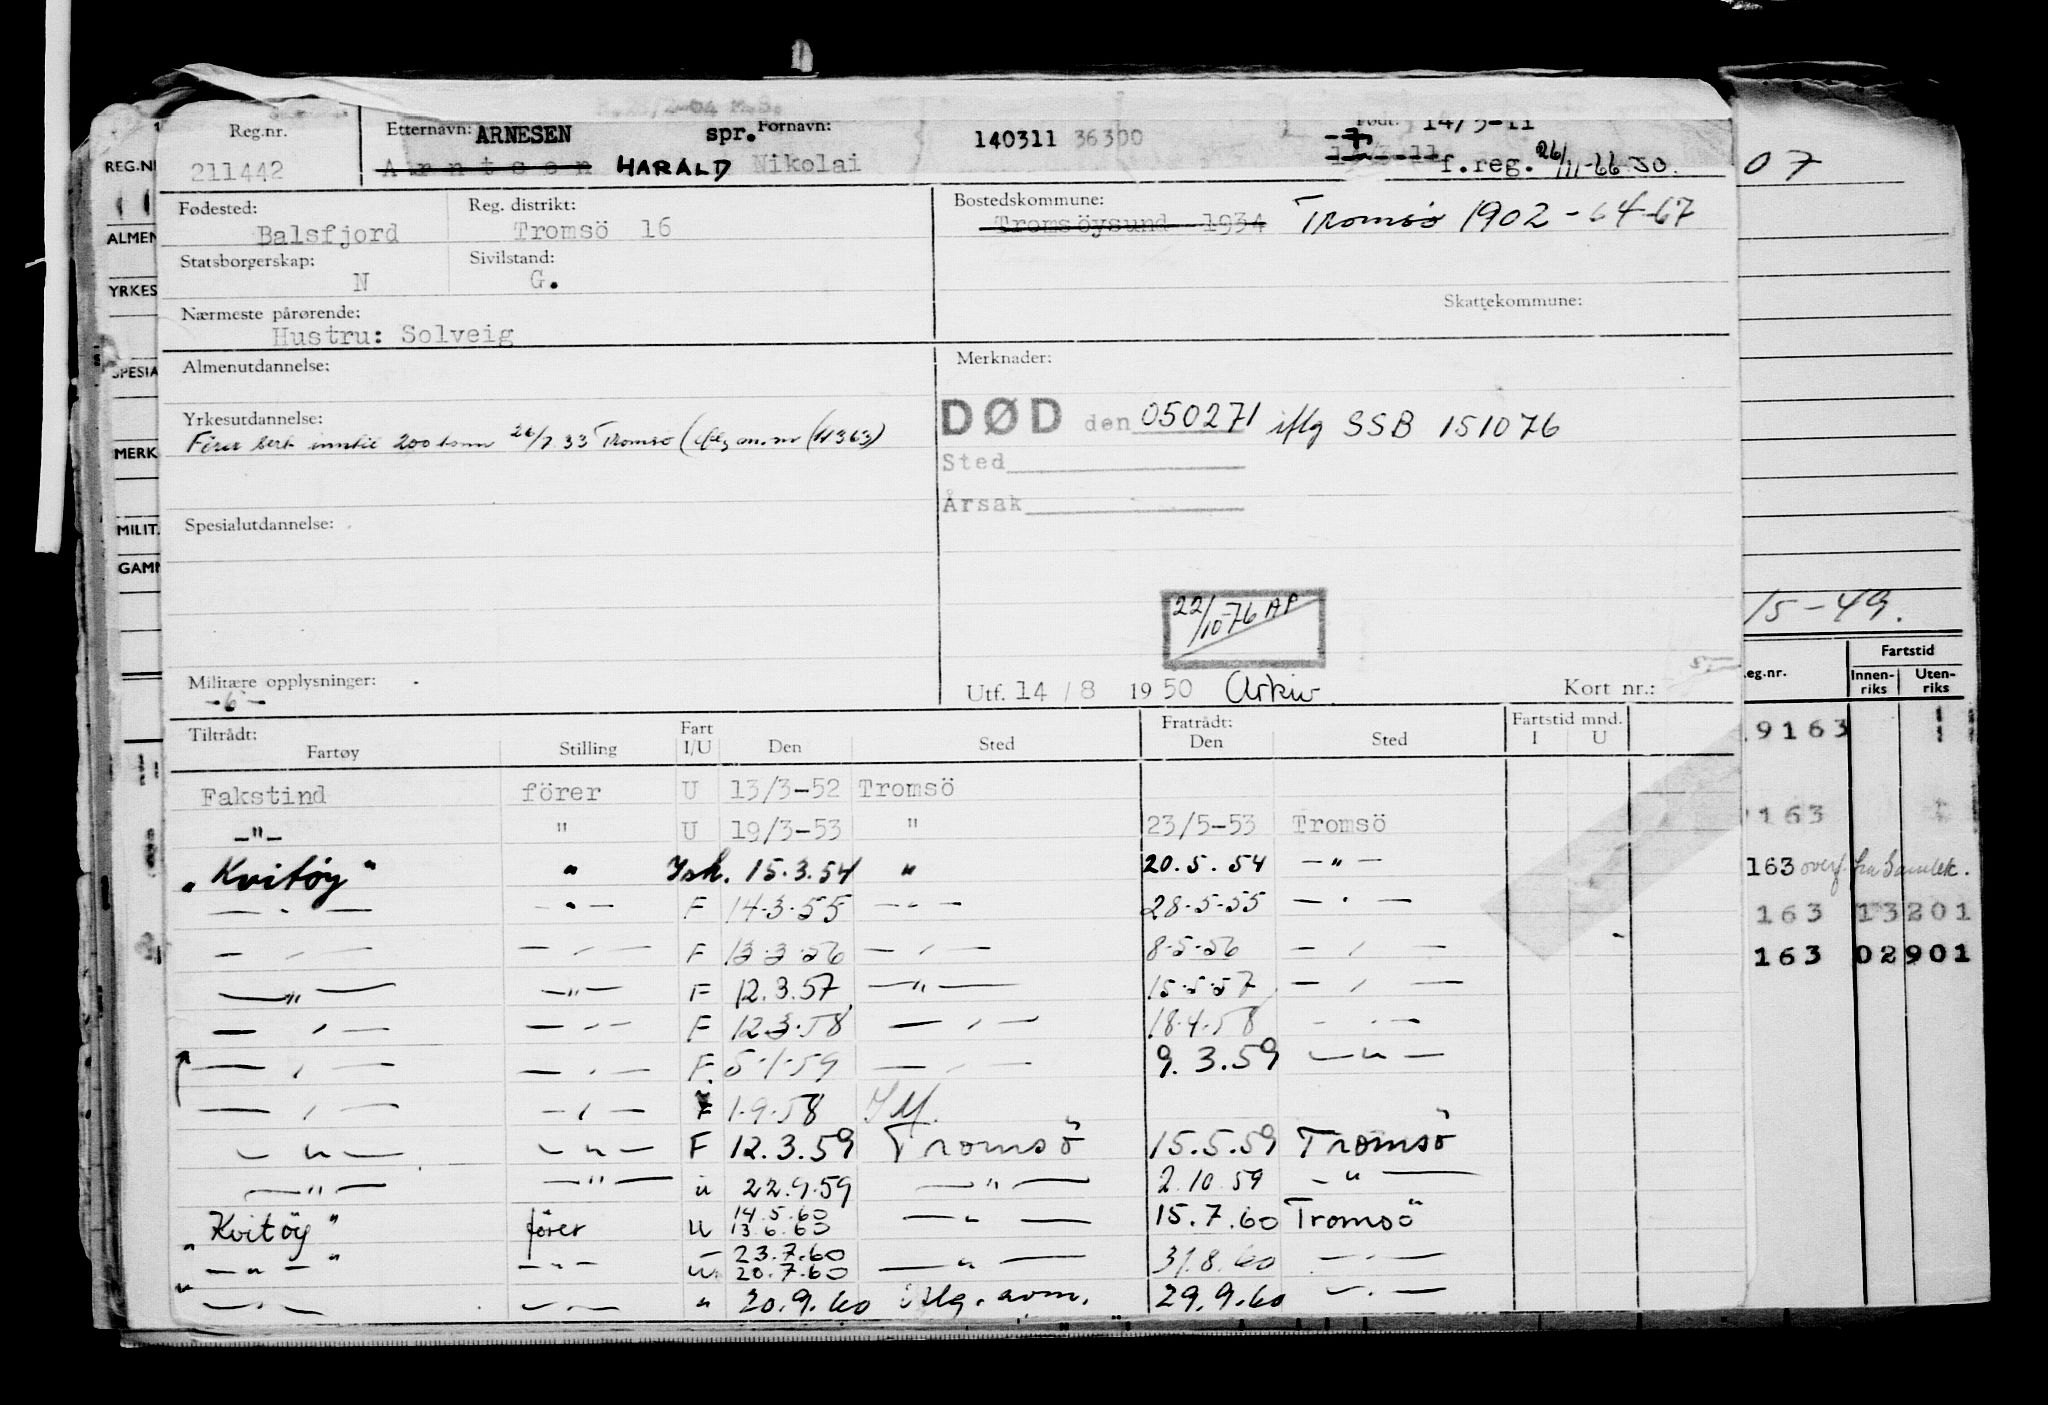 Reg.nr. Etternavn: ARNESEN spr. Fornavn: 140311 36300 Født: 14/3-11
211442 Arntsen HARALD Nikolai f.reg. 26/11-66 JO.
Fødested: Reg. distrikt: Bostedskommune:
Balsfjord Tromsö 16 Tromsöysund 1934 Tromsø 1902 - 64-67
Statsborgerskap: Sivilstand:
N G.
Skattekommune:
Nærmeste pårørende:
Hustru: Solveig
Almenutdannelse: Merknader:
Yrkesutdannelse:
DØD den 050271 iflg SSB 151076
Fører sert inntil 200 tonn 26/7.33 Tromsø
Sted
Årsak
Spesialutdannelse:
22/10-76 AP
Militære opplysninger:
-6-
Utf. 14 / 8 1950 Arkiv Kort nr.:
Tiltrådt: Fart Fratrådt: Fartstid mnd.
Fartøy Stilling I/U Den Sted Den Sted I U
Fakstind förer U 13/3-52 Tromsö
-"- " U 19/3-53 " 23/5-53 Tromsö
"Kvitøy" " Ish. 15.3.54 " 20.5.54 -"-
-"- -"- F 14.3.55 -"- 28.5.55 -"-
-"- -"- F 13.3.56 -"- 8.5.56 -"-
-"- -"- F 12.3.57 -"- 15.5.57 -"-
-"- -"- F 12.3.58 -"- 18.4.58 -"-
-"- -"- F. 5.1.59 -"- 9.3.59 -"-
-"- -"- F 1.9.58
-"- -"- F 12.3.59 Tromsö 15.5.59 Tromsö
-"- -"- u 22.9.59 -"- 2.10.59 -"-
"Kvitöy" förer U 14.5.60 13.6.60 -"- 15.7.60 Tromsö
-"- -"- U 23.7.60 20.7.60 -"- 31.8.60 -"-
-"- -"- " 20.9.60 iflg. avm. 29.9.60 -"-
REG.N
ALMEN
YRKES
SPESIA
MERK
MILIT.
GAMN
07
/5-49.
Fartstid
eg.nr. Innen-riks Uten-riks
9163
163
163 overf. fra Samlek.
163 13201
163 02901